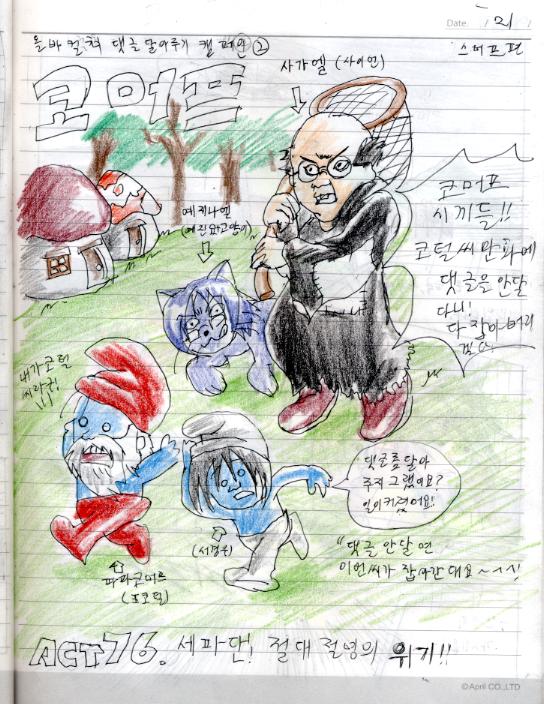 Date. / 21 /
돌바 컬쳐 댓글 달아주기 캠페인 ②
스머프편
코머프
사가엘 (사이언)
예지나엘
코머프
시끼들!!
코털씨 만화에
댓글을 안달
다니!
다 잡아버리
겠어
내가 코털
씨라구!
댓글좀 달아
주지 그랬어요?
일이 커졌어요!
파파코머프
(조코털)
"댓글 안달면
이번씨가 잡아간대요~
ACT 76. 세파단! 절대 절명의 위기!!
©April CO.,LTD